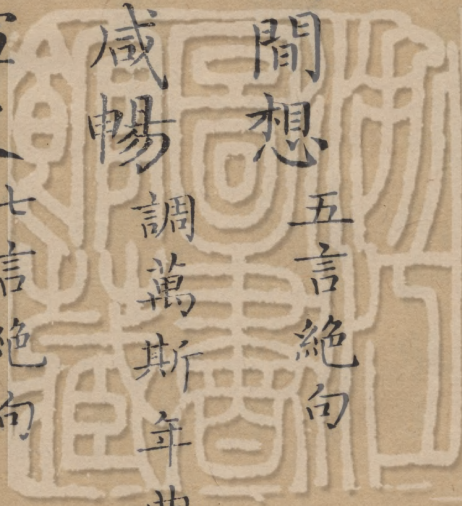 間想 五言絶句
咸暢 調萬斯年曲
七言絶句